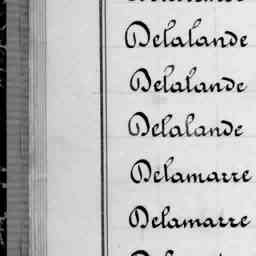 Delalande
Delalande
Delalande
Delamarre
Delamarre